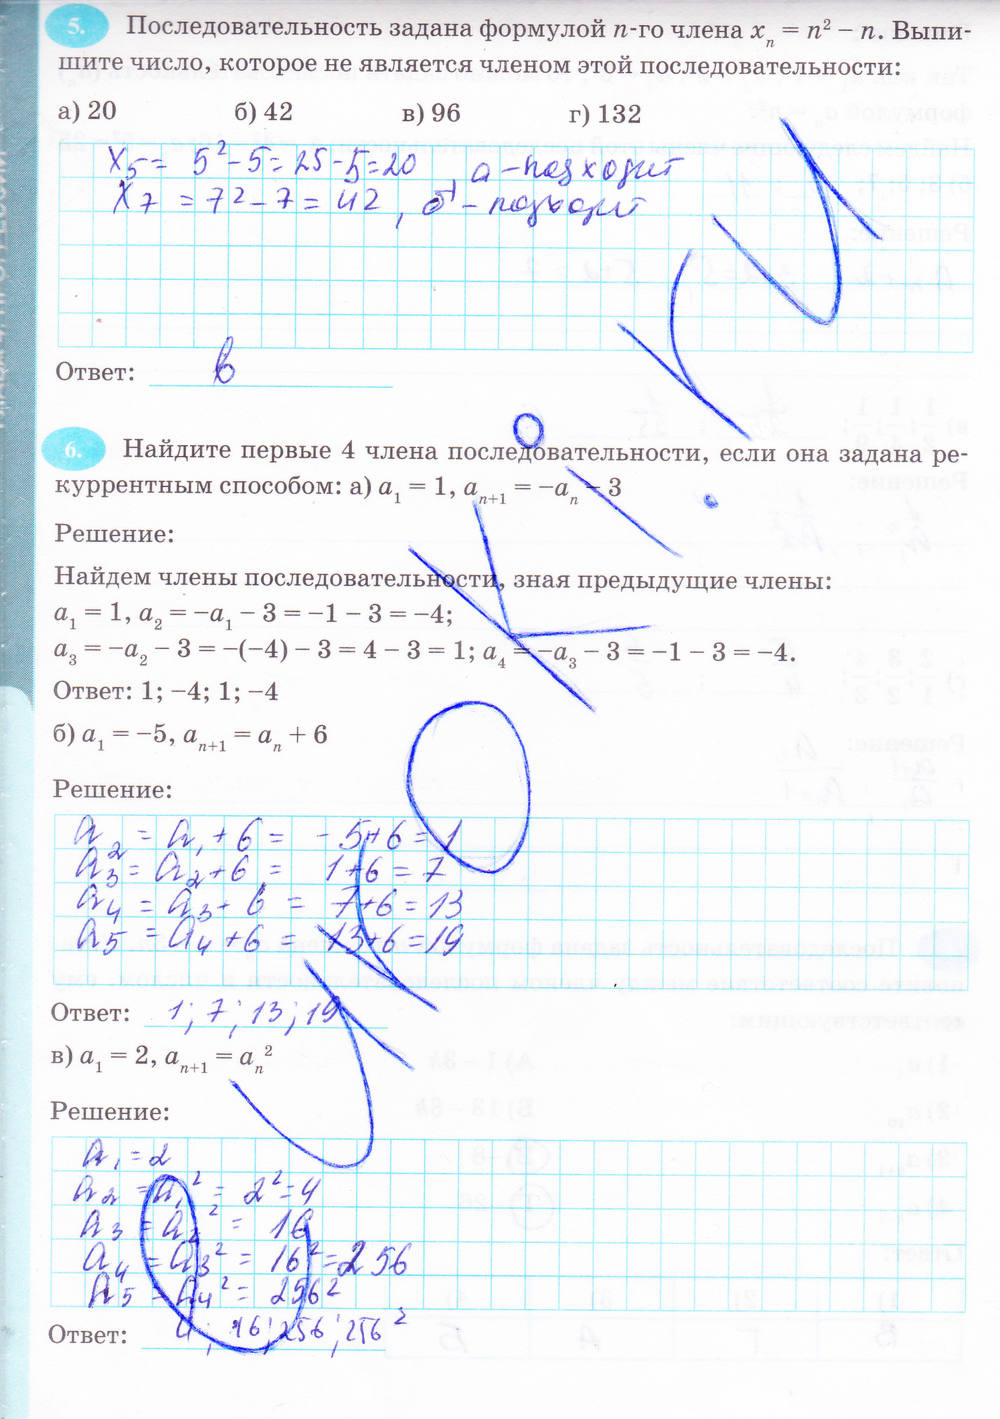 5. Последовательность задана формулой n-го члена xₙ = n² − n. Выпи-
шите число, которое не является членом этой последовательности:
а) 20 б) 42 в) 96 г) 132
x₅ = 5² - 5 = 25 - 5 = 20, а - подходит
x₇ = 7² - 7 = 42, б - подходит
Ответ: в
6. Найдите первые 4 члена последовательности, если она задана ре-
куррентным способом: а) a₁ = 1, aₙ₊₁ = −aₙ − 3
Решение:
Найдем члены последовательности, зная предыдущие члены:
a₁ = 1, a₂ = −a₁ − 3 = −1 − 3 = −4;
a₃ = −a₂ − 3 = −(−4) − 3 = 4 − 3 = 1; a₄ = −a₃ − 3 = −1 − 3 = −4.
Ответ: 1; −4; 1; −4
б) a₁ = −5, aₙ₊₁ = aₙ + 6
Решение:
a₂ = a₁ + 6 = -5+6 = 1
a₃ = a₂ + 6 = 1+6 = 7
a₄ = a₃ + 6 = 7+6 = 13
a₅ = a₄ + 6 = 13+6 = 19
Ответ: 1; 7; 13; 19
в) a₁ = 2, aₙ₊₁ = aₙ²
Решение:
a₁ = 2
a₂ = a₁² = 2² = 4
a₃ = a₂² = 16
a₄ = a₃² = 16² = 256
a₅ = a₄² = 256²
Ответ: 4; 16; 256; 256²